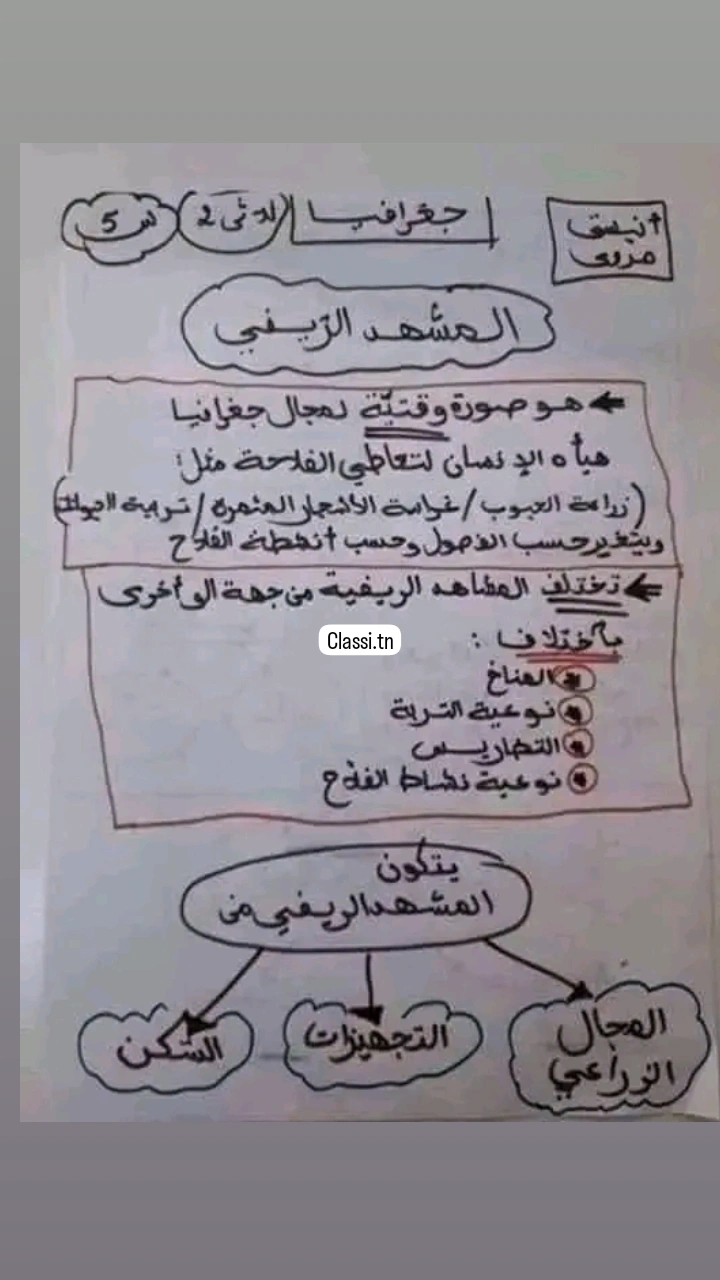 آنستي
مروى
جغرافيا
ثلاثي 2
س 5
المشهد الرّيفي
هو صورة وقتيّة لمجال جغرافيا
هيأه الإنسان لتعاطي الفلاحة مثل:
(زراعة الحبوب / غراسة الأشجار المثمرة / تربية الحيوانات)
ويتغير حسب الفصول وحسب أنشطة الفلاح
تختلف المشاهد الريفية من جهة الى أخرى
Classi.tn
بٱختلاف :
المناخ
نوعية التربة
التضاريس
نوعية نشاط الفلاح
يتكون
المشهد الريفي من
المجال
الزراعي
التجهيزات
السّكن